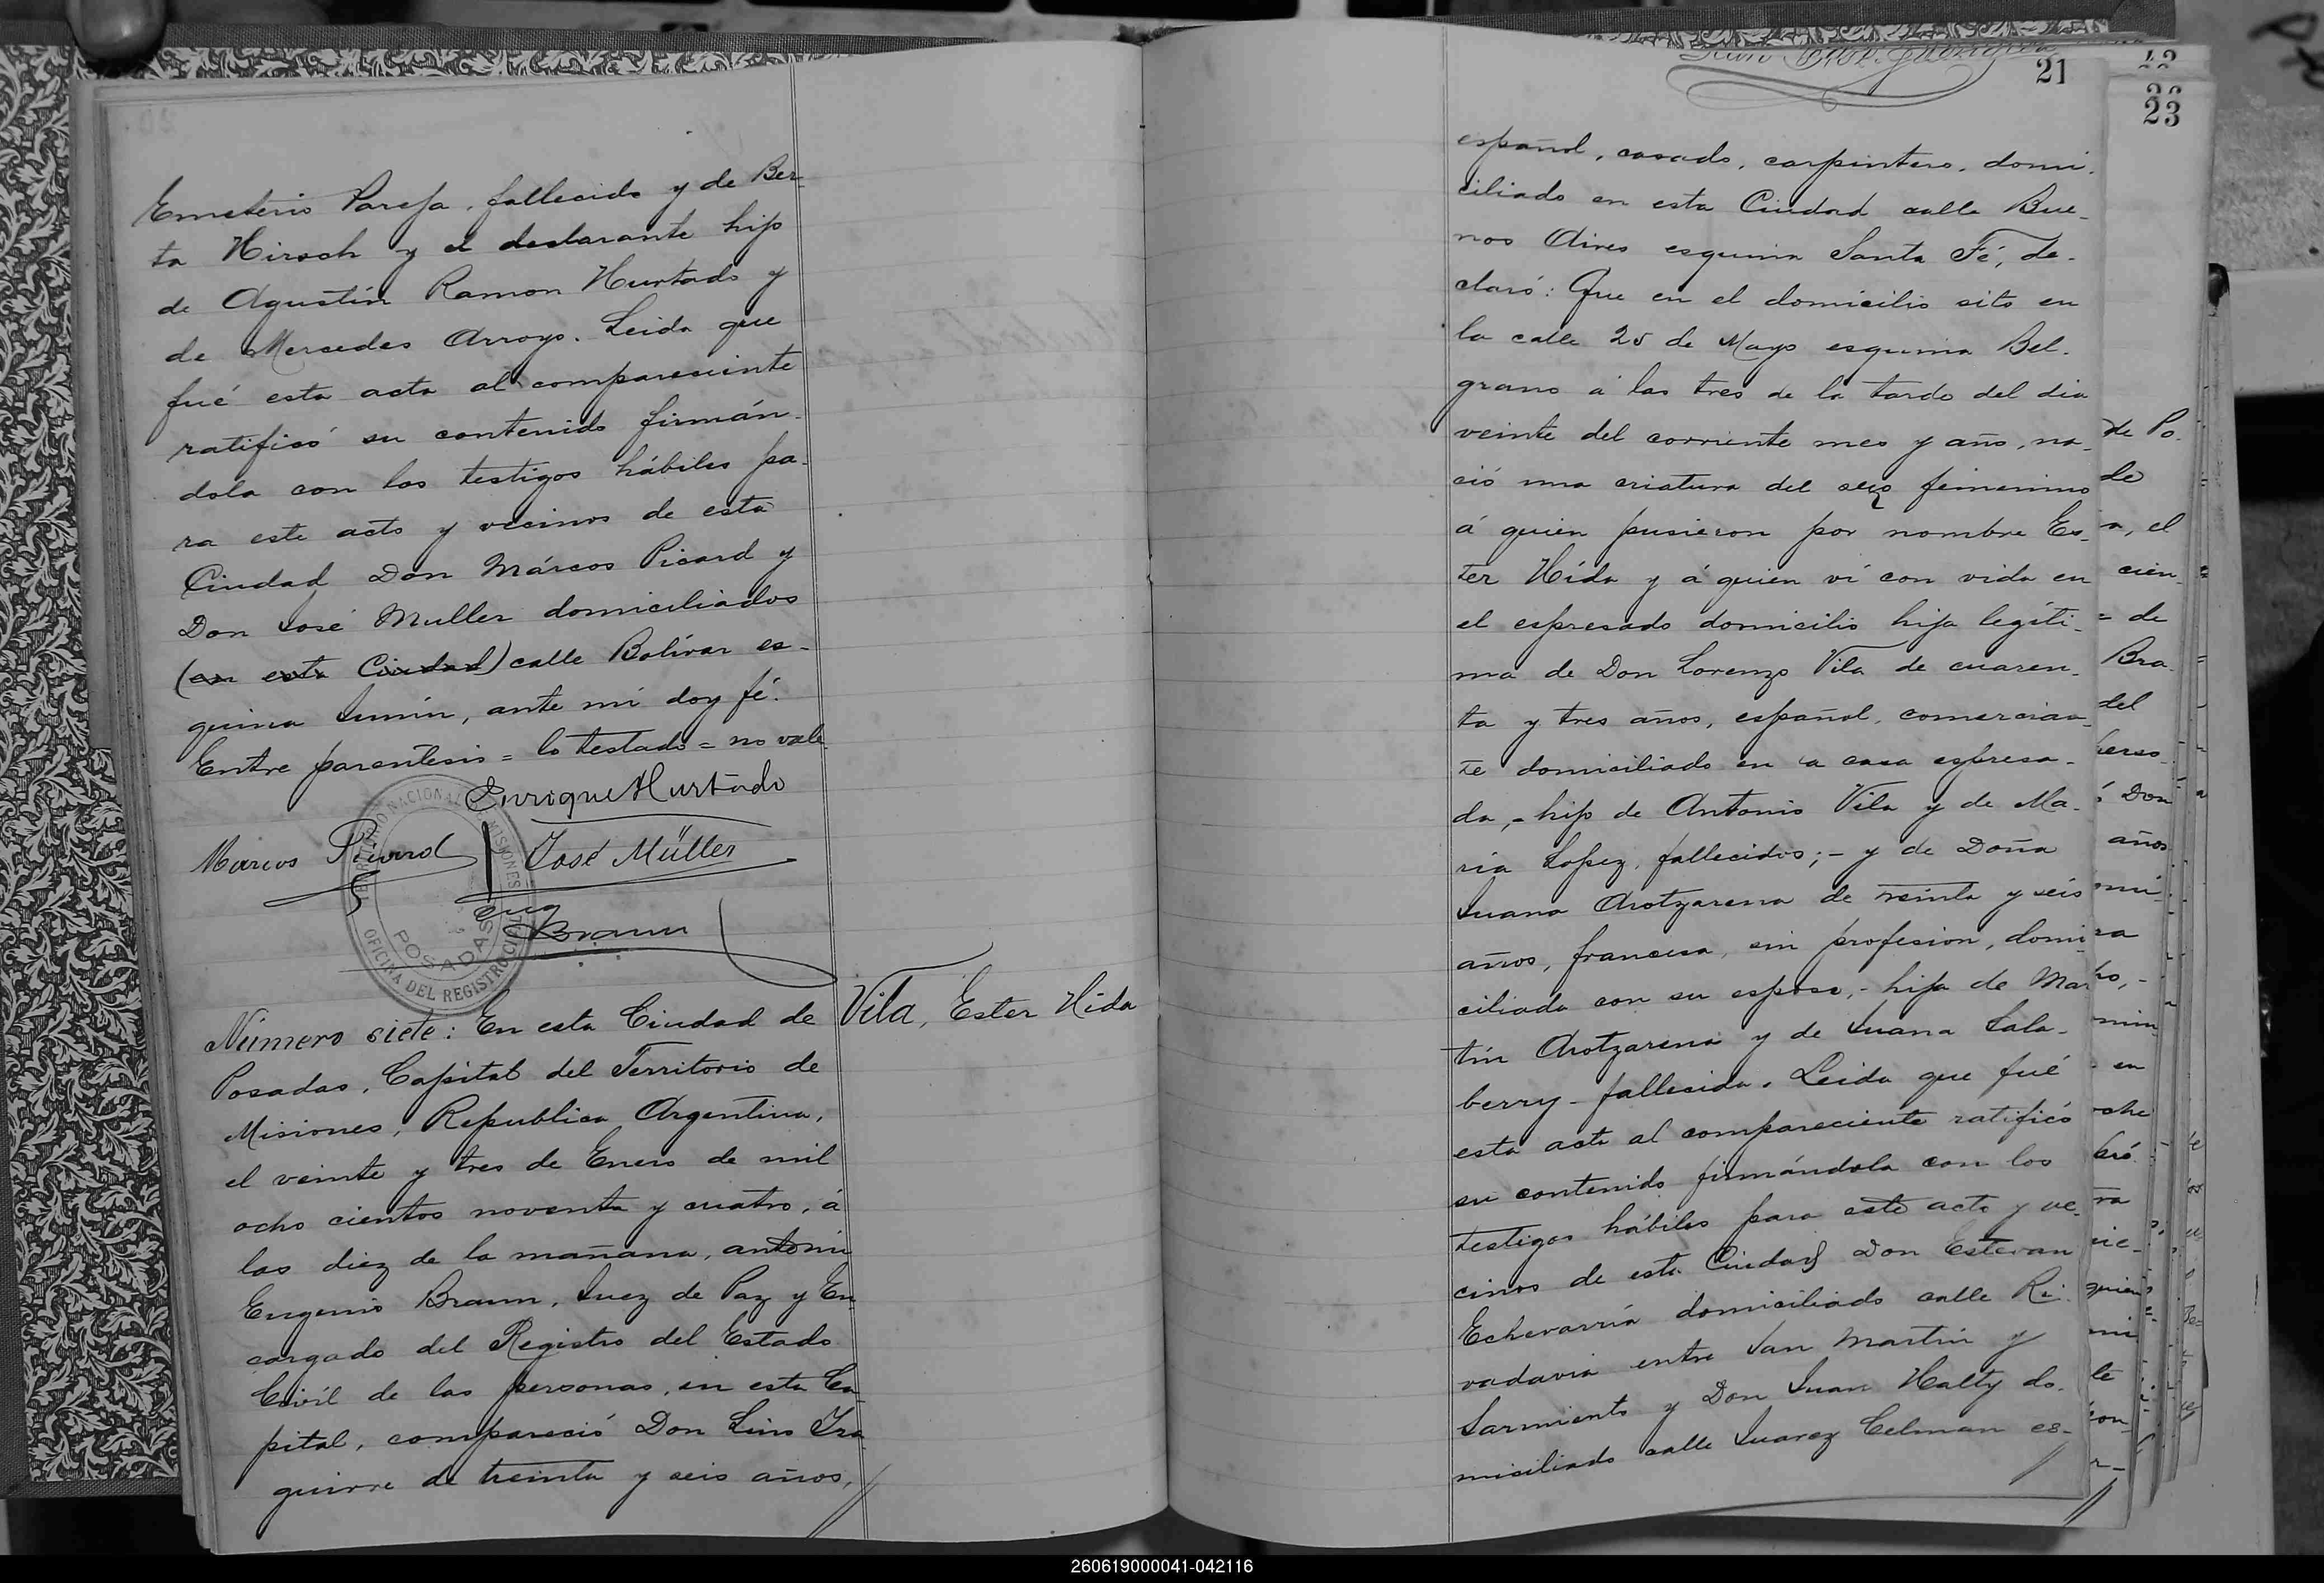 Emeterio Pareja, fallecido y de Ber-
ta Hirsch y el declarante hijo
de Agustín Ramon Hurtado y
de Mercedes Arroyo. Leida que
fué esta acta al compareciente
ratificó su contenido firmán-
dola con los testigos hábiles pa-
ra este acto y vecinos de esta
Ciudad Don Márcos Picard y
Don José Muller domiciliados
(en esta Ciudad) calle Bolívar es-
quina Junin, ante mí doy fé.
Entre parentesis = lo testado = no vale
Enrique Hurtado
Marcos Picard
José Müller
Eug Braun
TERRITORIO NACIONAL DE MISIONES
POSADAS
OFICINA DEL REGISTRO CIVIL
Vila, Ester Hida
Número siete: En esta Ciudad de
Posadas, Capital del Territorio de
Misiones, Republica Argentina,
el veinte y tres de Enero de mil
ocho cientos noventa y cuatro, á
las diez de la mañana, ante mi
Eugenio Braun, Juez de Paz y En
cargado del Registro del Estado
Civíl de las personas, en esta Ca
pital, compareció Don Lino Yra
guirre de treinta y seis años,
21
español, casado, carpintero, domi-
ciliado en esta Ciudad calle Bue-
nos Aires esquina Santa Fé, de-
claró: Que en el domicilio sito en
la calle 25 de Mayo esquina Bel-
grano á las tres de la tarde del dia
veinte del corriente mes y año, na-
ció una criatura del sexo femenino
á quien pusieron por nombre Es-
ter Hída y á quien ví con vida en
el espresado domicilio hija legíti-
ma de Don Lorenzo Vila de cuaren-
ta y tres años, español, comercian-
te domiciliado en a casa espresa-
da,- hijo de Antonio Vila y de Ma-
ria Lopez, fallecidos;- y de Doña
Juana Arotzarena de treinta y seis
años, francesa, sin profesion, domi
ciliada con su esposo,- hija de Mar
tín Arotzarena y de Juana Sala-
berry - fallecida. Leida que fué
esta acta al compareciente ratificó
su contenido firmándola con los
testigos hábiles para este acto y ve-
cinos de esta Ciudad Don Estevan
Echevarría domiciliado calle Ri-
vadavia entre San Martin y
Sarmiento y Don Juan Halty do-
miciliado calle Juarez Celman es-
23
de Po-
de
a, el
cien-
= de
Bra-
del
Don
años
260619000041-042116